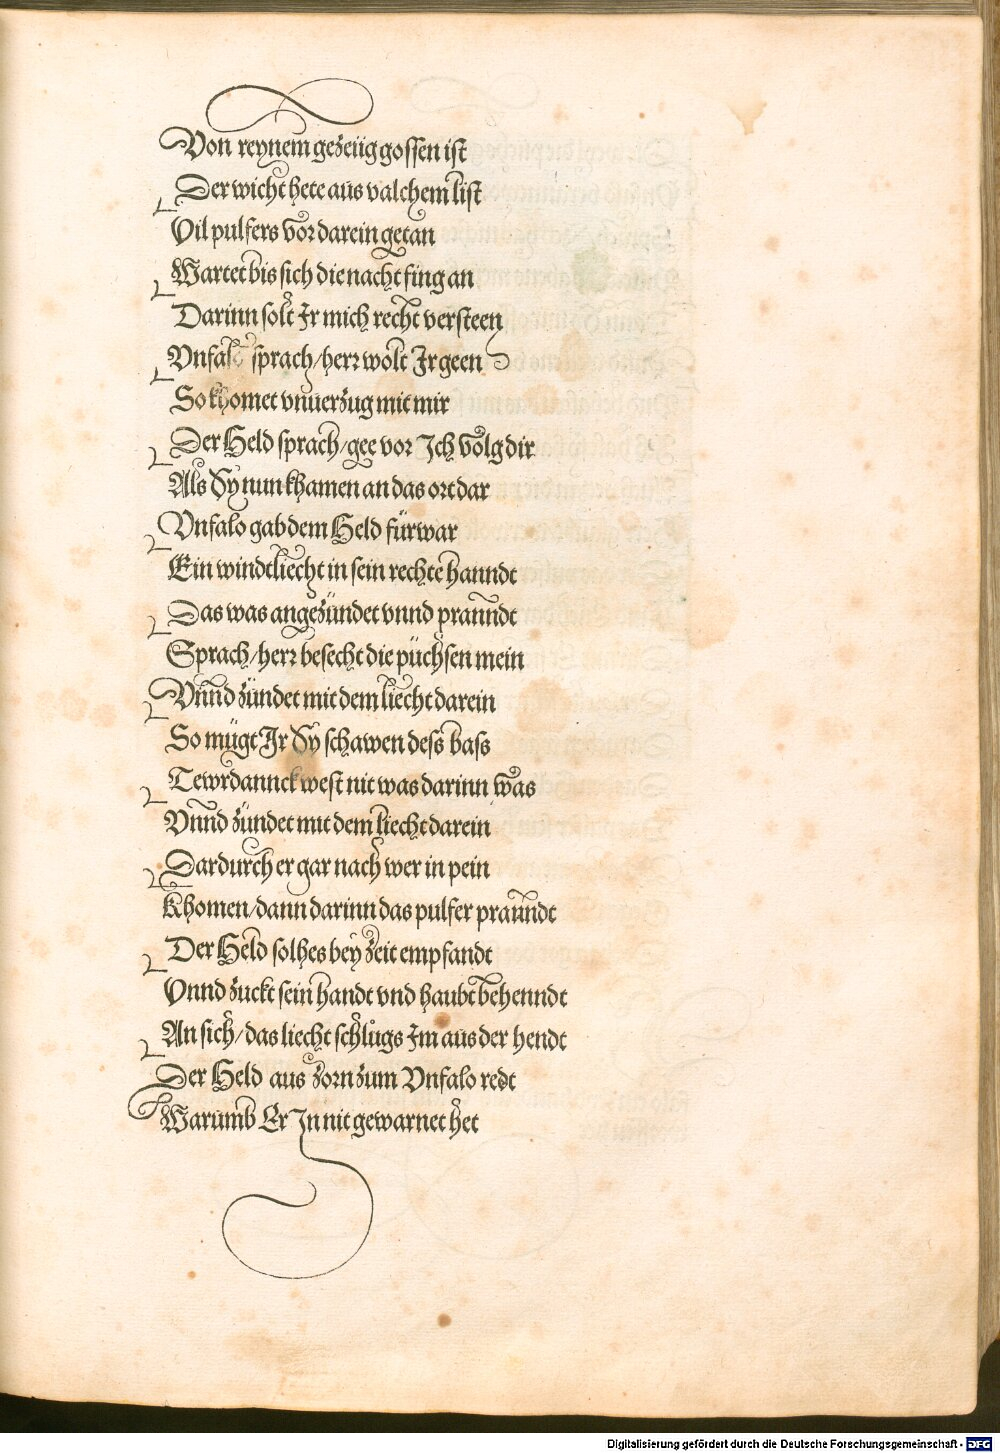 Von reynem gezeüg gossen ist
Der wicht hete aus valchem list
Vil pulfers vor darein getan
Wartet bis sich die nacht fing an
Darinn solt Ir mich recht versteen
Vnfalo sprach/herr wolt Ir geen
So khomet vnuerzug mit mir
Der Held sprach/gee vor Ich volg dir
Als Sy nun khamen an das ort dar
Vnfalo gab dem Held fürwar
Ein windtliecht in sein rechte hanndt
Das was angezündet vnnd pranndt
Sprach/herr besecht die püchsen mein
Vnnd zündet mit dem liecht darein
So mügt Ir Sy schawen dess bass
Tewrdannck west nit was darinn was
Vnnd zündet mit dem liecht darein
Dardurch er gar nach wer in pein
Khomen/dann darinn das pulfer pranndt
Der Held solhes bey zeit empfandt
Vnnd zuckt sein handt vnd haubt behenndt
An sich/das liecht schlůgs Im aus der hendt
Der Held aus zorn zum Vnfalo redt
Warumb Er In nit gewarnet het
Digitalisierung gefördert durch die Deutsche Forschungsgemeinschaft - DFG